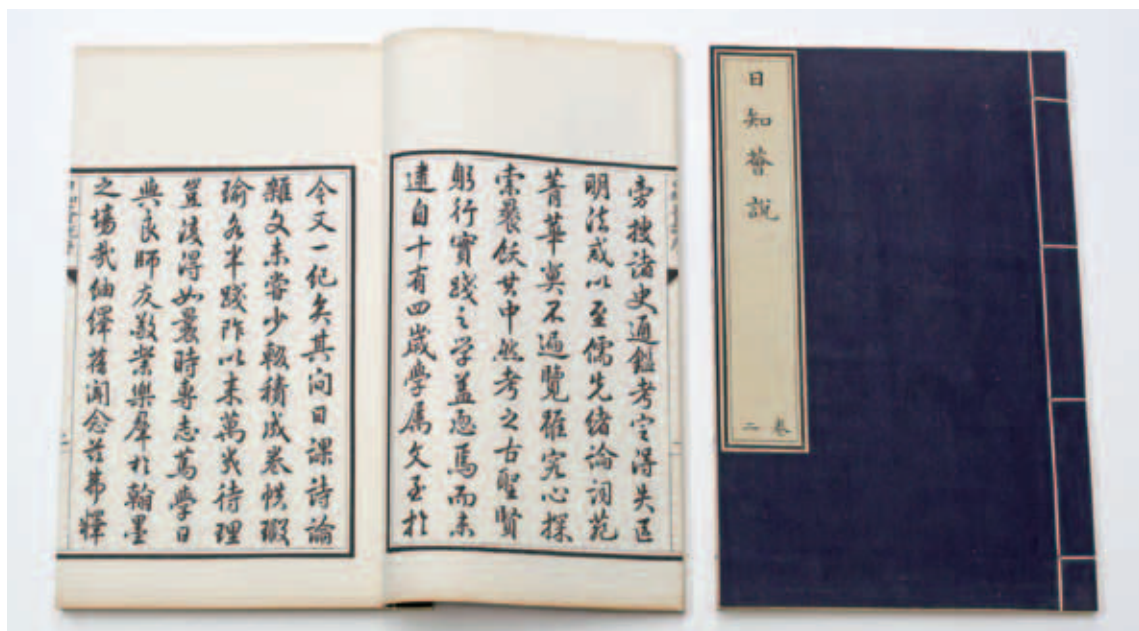 日知薈說
卷二
旁搜諸史通鑑考定得失區
明法戒以至儒先緒論詞苑
菁華莫不遍覽雖究心探
索饜飫其中然考之古聖賢
躬行實踐之学蓋恧焉而未
逮自十有四歲學属文至扵
今又一纪矣其间日課詩論
雜文未嘗少輟積成卷帙瑕
瑜各半踐阼以来萬幾待理
豈復得如曩時專志篤學日
與良師友敬業樂羣扵翰墨
之場哉紬繹舊聞念茲弗釋